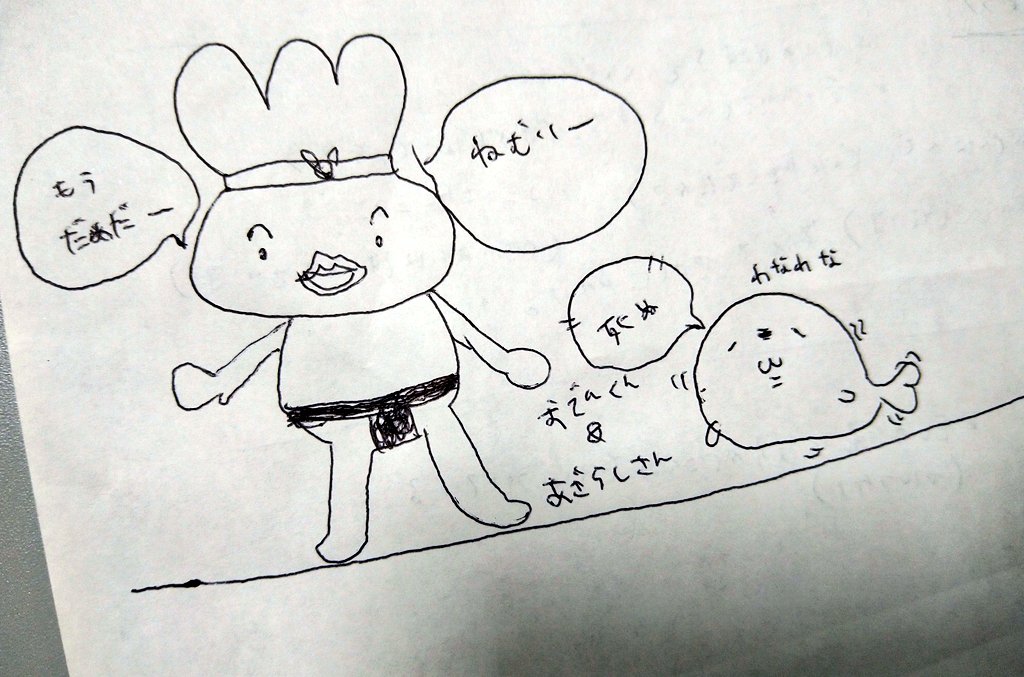 もう
だめだー
ねむいー
すくぬ
わなわな
おでんくん
&
あざらしさん